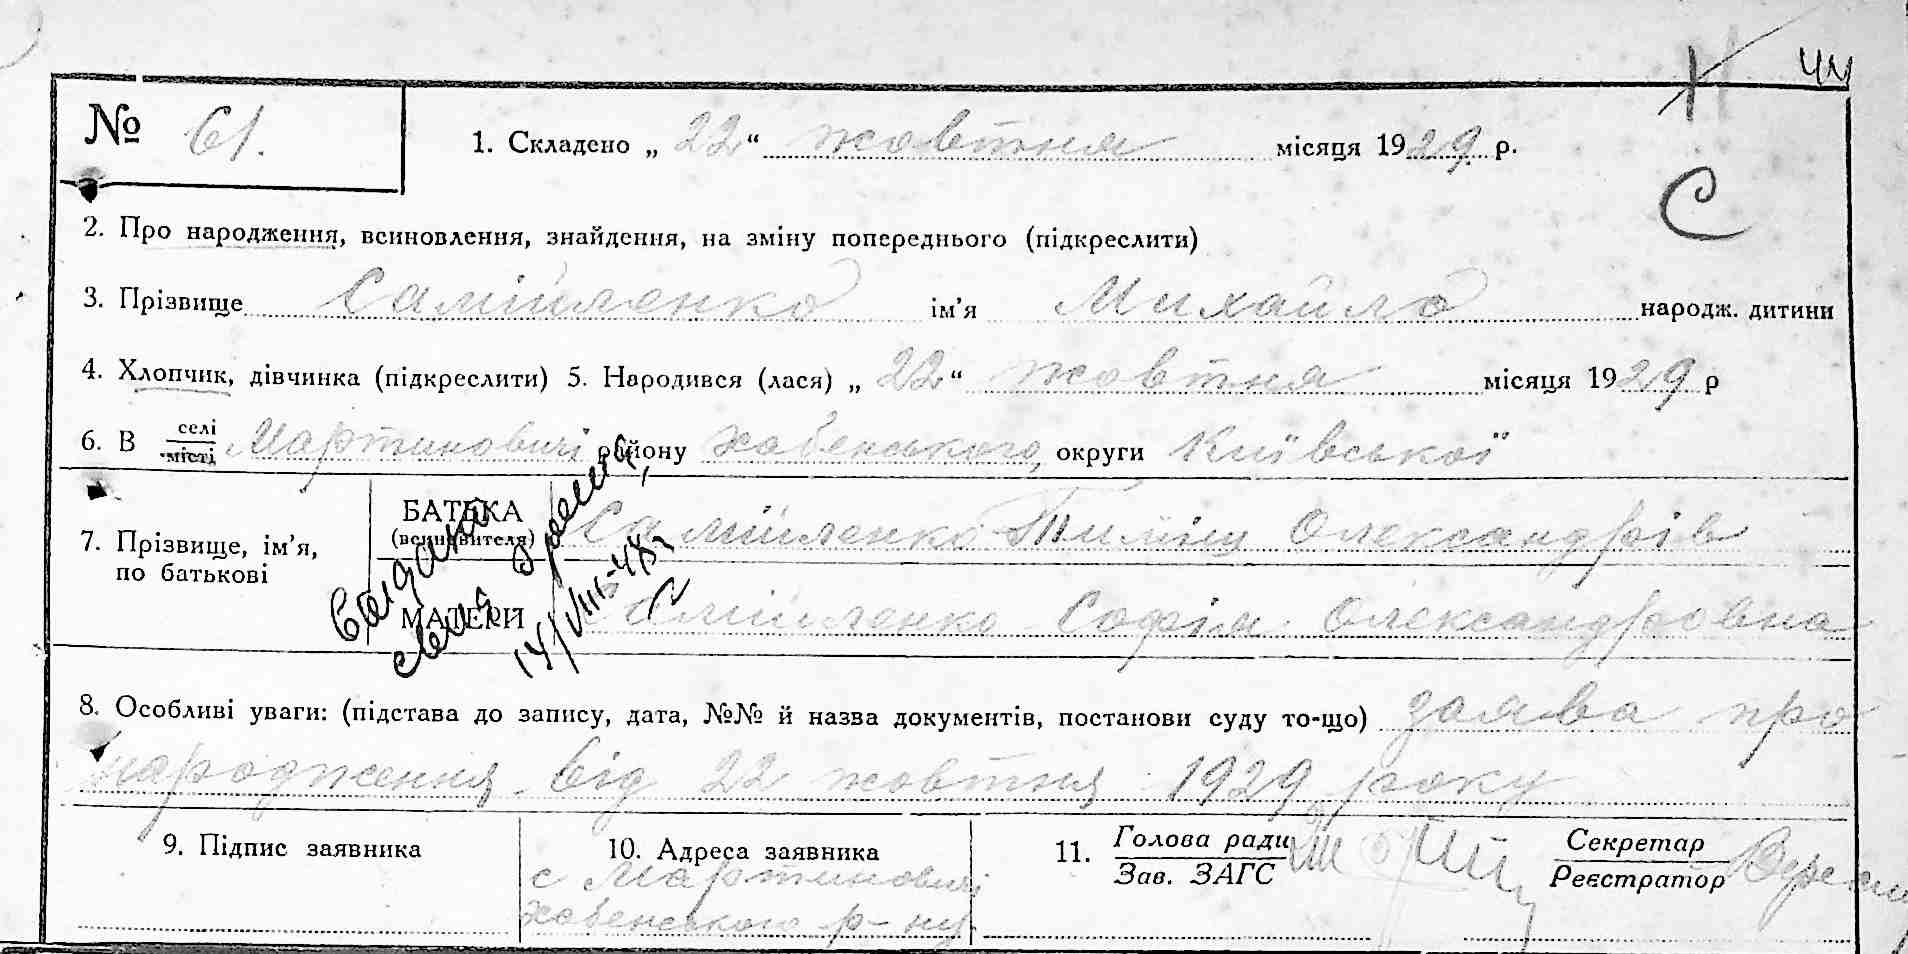 44
№ 61. 1. Складено „ 22 “ жовтня місяця 1929 р.
С
2. Про народження, всиновлення, знайдення, на зміну попереднього (підкреслити)
3. Прізвище Самійленко ім’я Михайло народж. дитини
4. Хлопчик, дівчинка (підкреслити) 5. Народився (лася) „ 22 “ жовтня місяця 1929 р
6. В селі місті Мартиновичі району Хабенського, округи Київської
7. Прізвище, ім’я, по батькові
БАТЬКА (всиновителя) Самійленко Тиміш Олександрів
МАТЕРИ Самійленко Софія Олександровна
8. Особливі уваги: (підстава до запису, дата, №№ й назва документів, постанови суду то-що) заява про
народження від 22 жовтня 1929 року
9. Підпис заявника
10. Адреса заявника
с Мартиновичі
Хабенського р-ну
11. Голова ради
Зав. ЗАГС
Секретар
Реєстратор